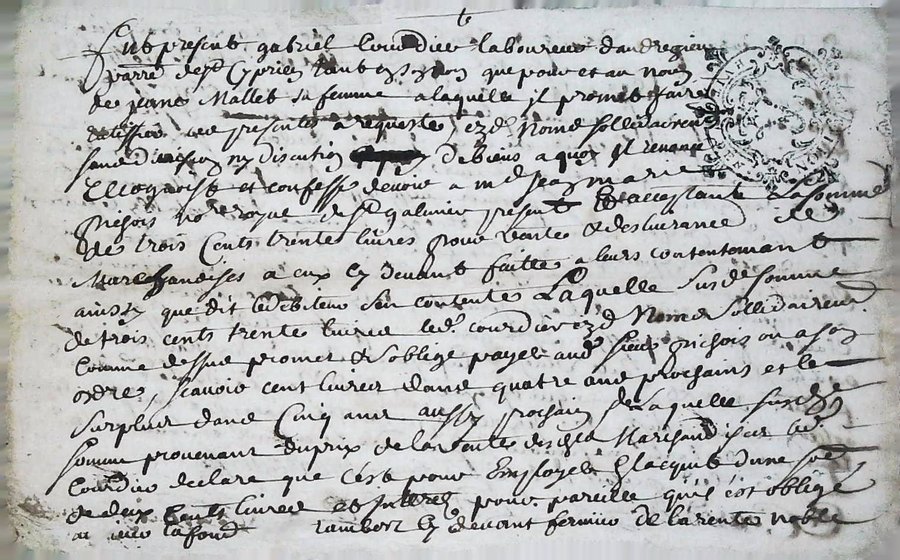 fut present gabriel Courdieu laboureur
parr. de st Cyprien tant que pour et au nom
de jeane Mallet sa femme a laquelle jl promet faire
ces presentes a requeste, ezd. Noms sollidairem
sans division ny discution de biens a quoy jl renance
et confesse devoir a md jean marie
Pichois no.re royal de st galmier present et acceptant La somme
de trois Cents trente livres pour vente & deslivrance de
Marchandises a eux cy devant faitte a leurs contentemant
ainsy que dit le debiteur s'en contente Laquelle susd. somme
de trois cents trente livres led. courdier ezd. Noms Sollidairem
Comme dessus promet & s'oblige payer aud. sieur Pichois ou a son
ordre, scavoir cent livres dans quatre ans prochains et le
Surplus dans Cinq ans aussy prochain de Laquelle susd.
somme provenant du prix de la vente desd. Marchandises led.
Courdier declare que c'est pour Employer a l'acquit d'une
de deux Cents livres et pour pareille qu'il s'est obligé
rambert cy devant fermier de la rente noble